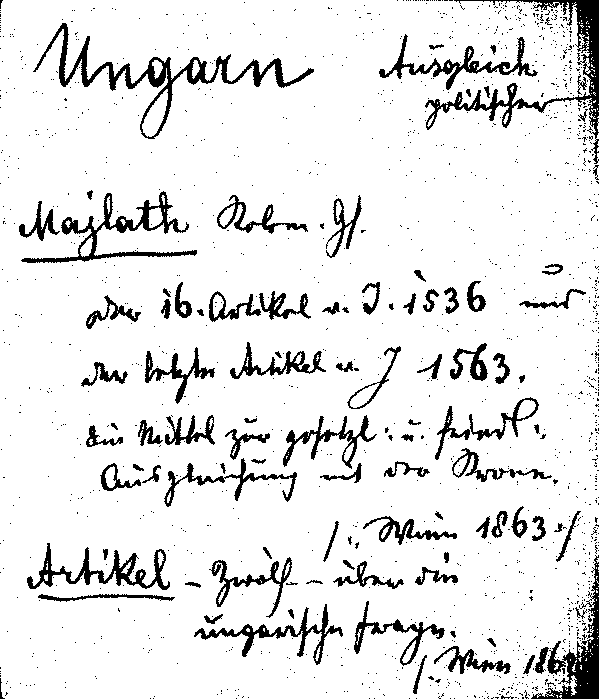 Ungarn
Ausgleich
politischer
Majlath Kolom. Gf.
der 16. Artikel v. J. 1536 und
der letzte Artikel v. J 1563.
Ein Mittel zur gesetzl: u. friedl:
Ausgleichung mit der Krone.
/:. Wien 1863 :/
Artikel – Zwölf – über die
ungarische Frage.
/:. Wien